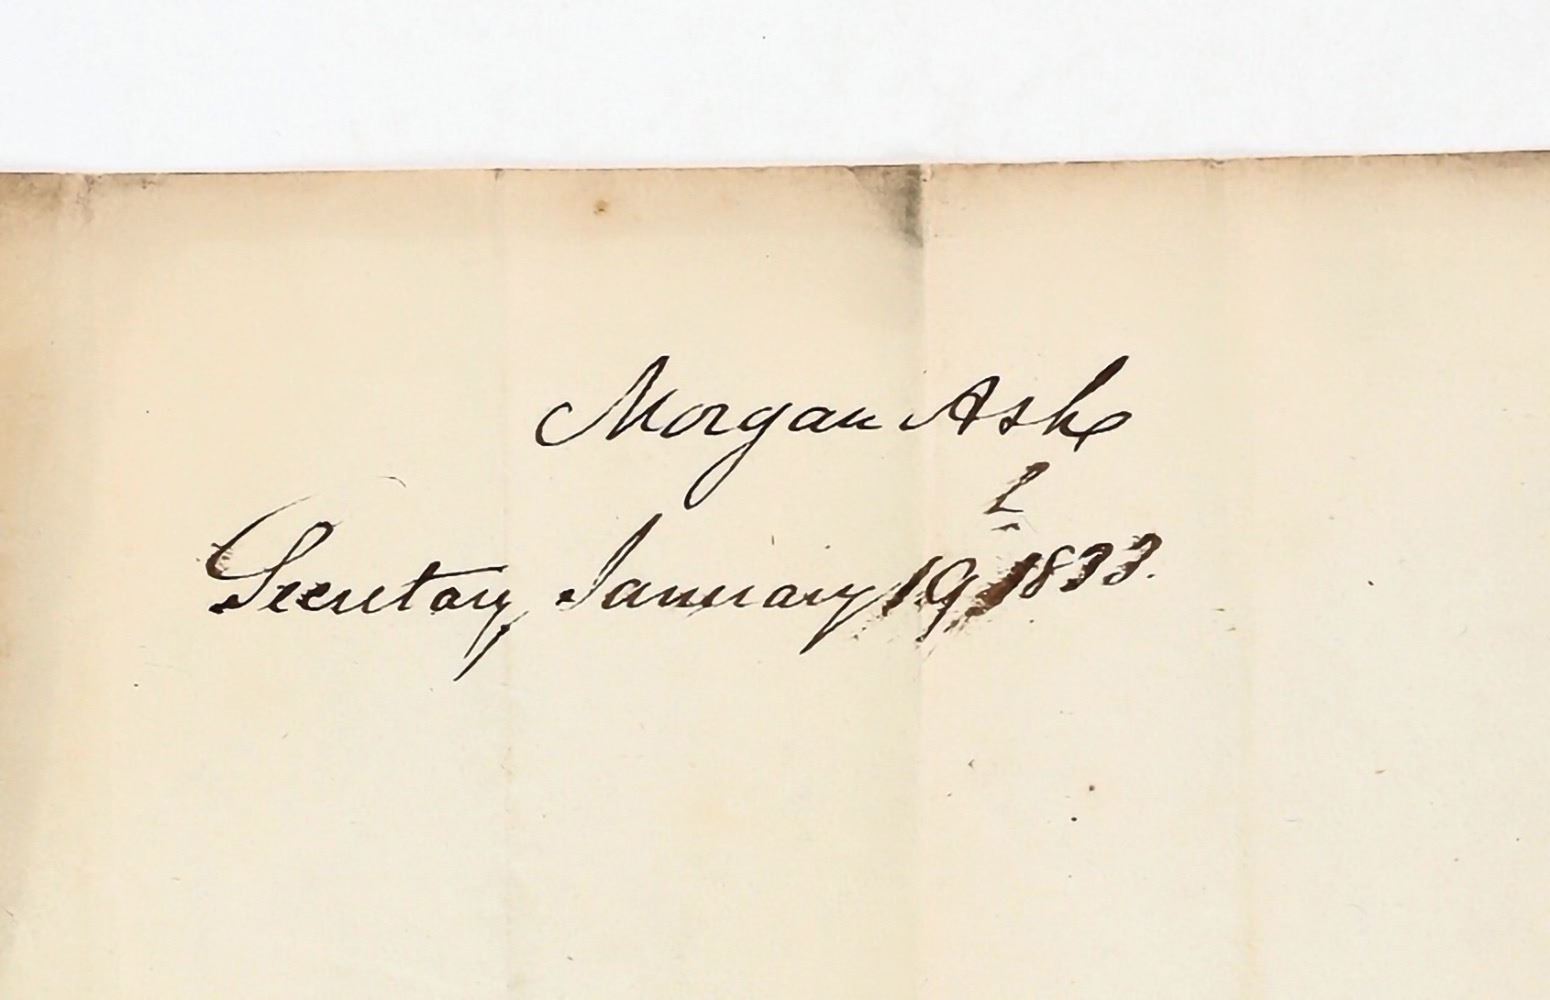 Morgan Ash
Secretary, January 19, 1833.